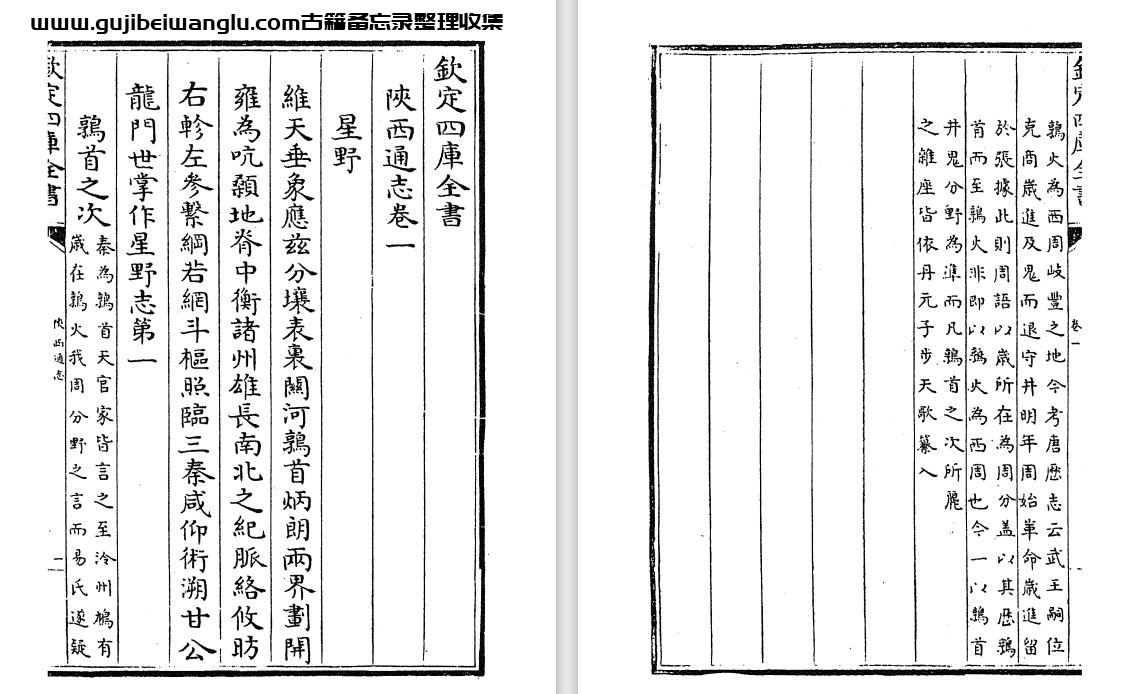 www.gujibeiwanglu.com古籍备忘录整理收集
欽定四庫全書
陜西通志卷一
星野
維天垂象應兹分壤表裏關河鶉首炳朗兩界劃開
雍為吭顙地脊中衡諸州雄長南北之紀脈絡攸昉
右軫左參繫綱若網斗樞照臨三秦咸仰術溯甘公
龍門世掌作星野志第一
鶉首之次
秦為鶉首天官家皆言之至泠州鳩有
歲在鶉火我周分野之言而易氏遂疑
欽定四庫全書
陜西通志
一
欽定四庫全書
卷一
鶉火為西周岐豐之地今考唐歴志云武王嗣位
克商嵗進及鬼而退守井明年周始革命嵗進留
於張據此則周語以嵗所在為周分盖以其歴鶉
首而至鶉火非即以鶉火為西周也今一以鶉首
井鬼分野為準而凡鶉首之次所麗
之雜座皆依丹元子步天歌纂入